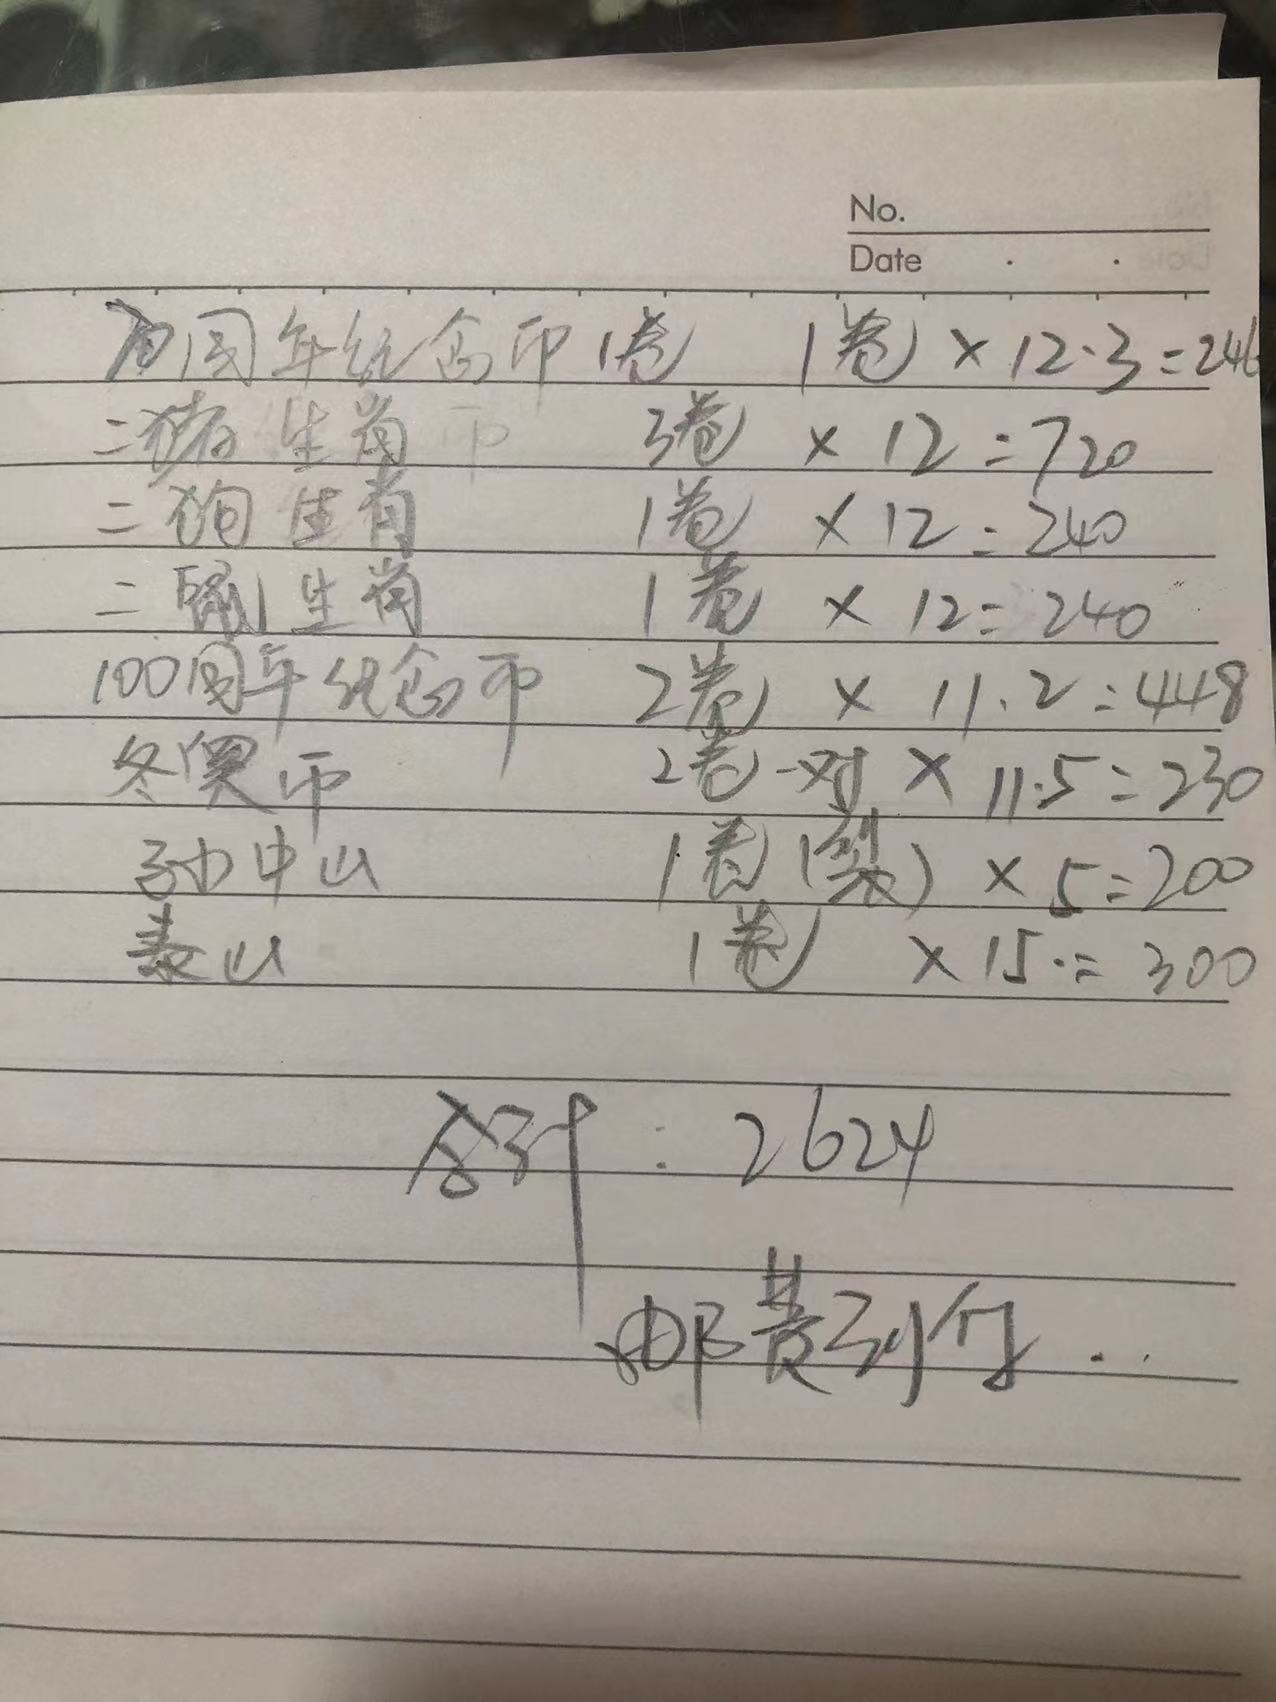 No.
Date
70周年纪念币1卷 1卷 × 12.3=246
二猪生肖币 3卷 × 12=720
二狗生肖 1卷 × 12=240
二鼠生肖 1卷 × 12=240
100周年纪念币 2卷 × 11.2=448
冬奥币 2卷一对 × 11.5=230
孙中山 1卷(裂) × 5=200
泰山 1卷 × 15.=300
合计:2624
邮费到付..